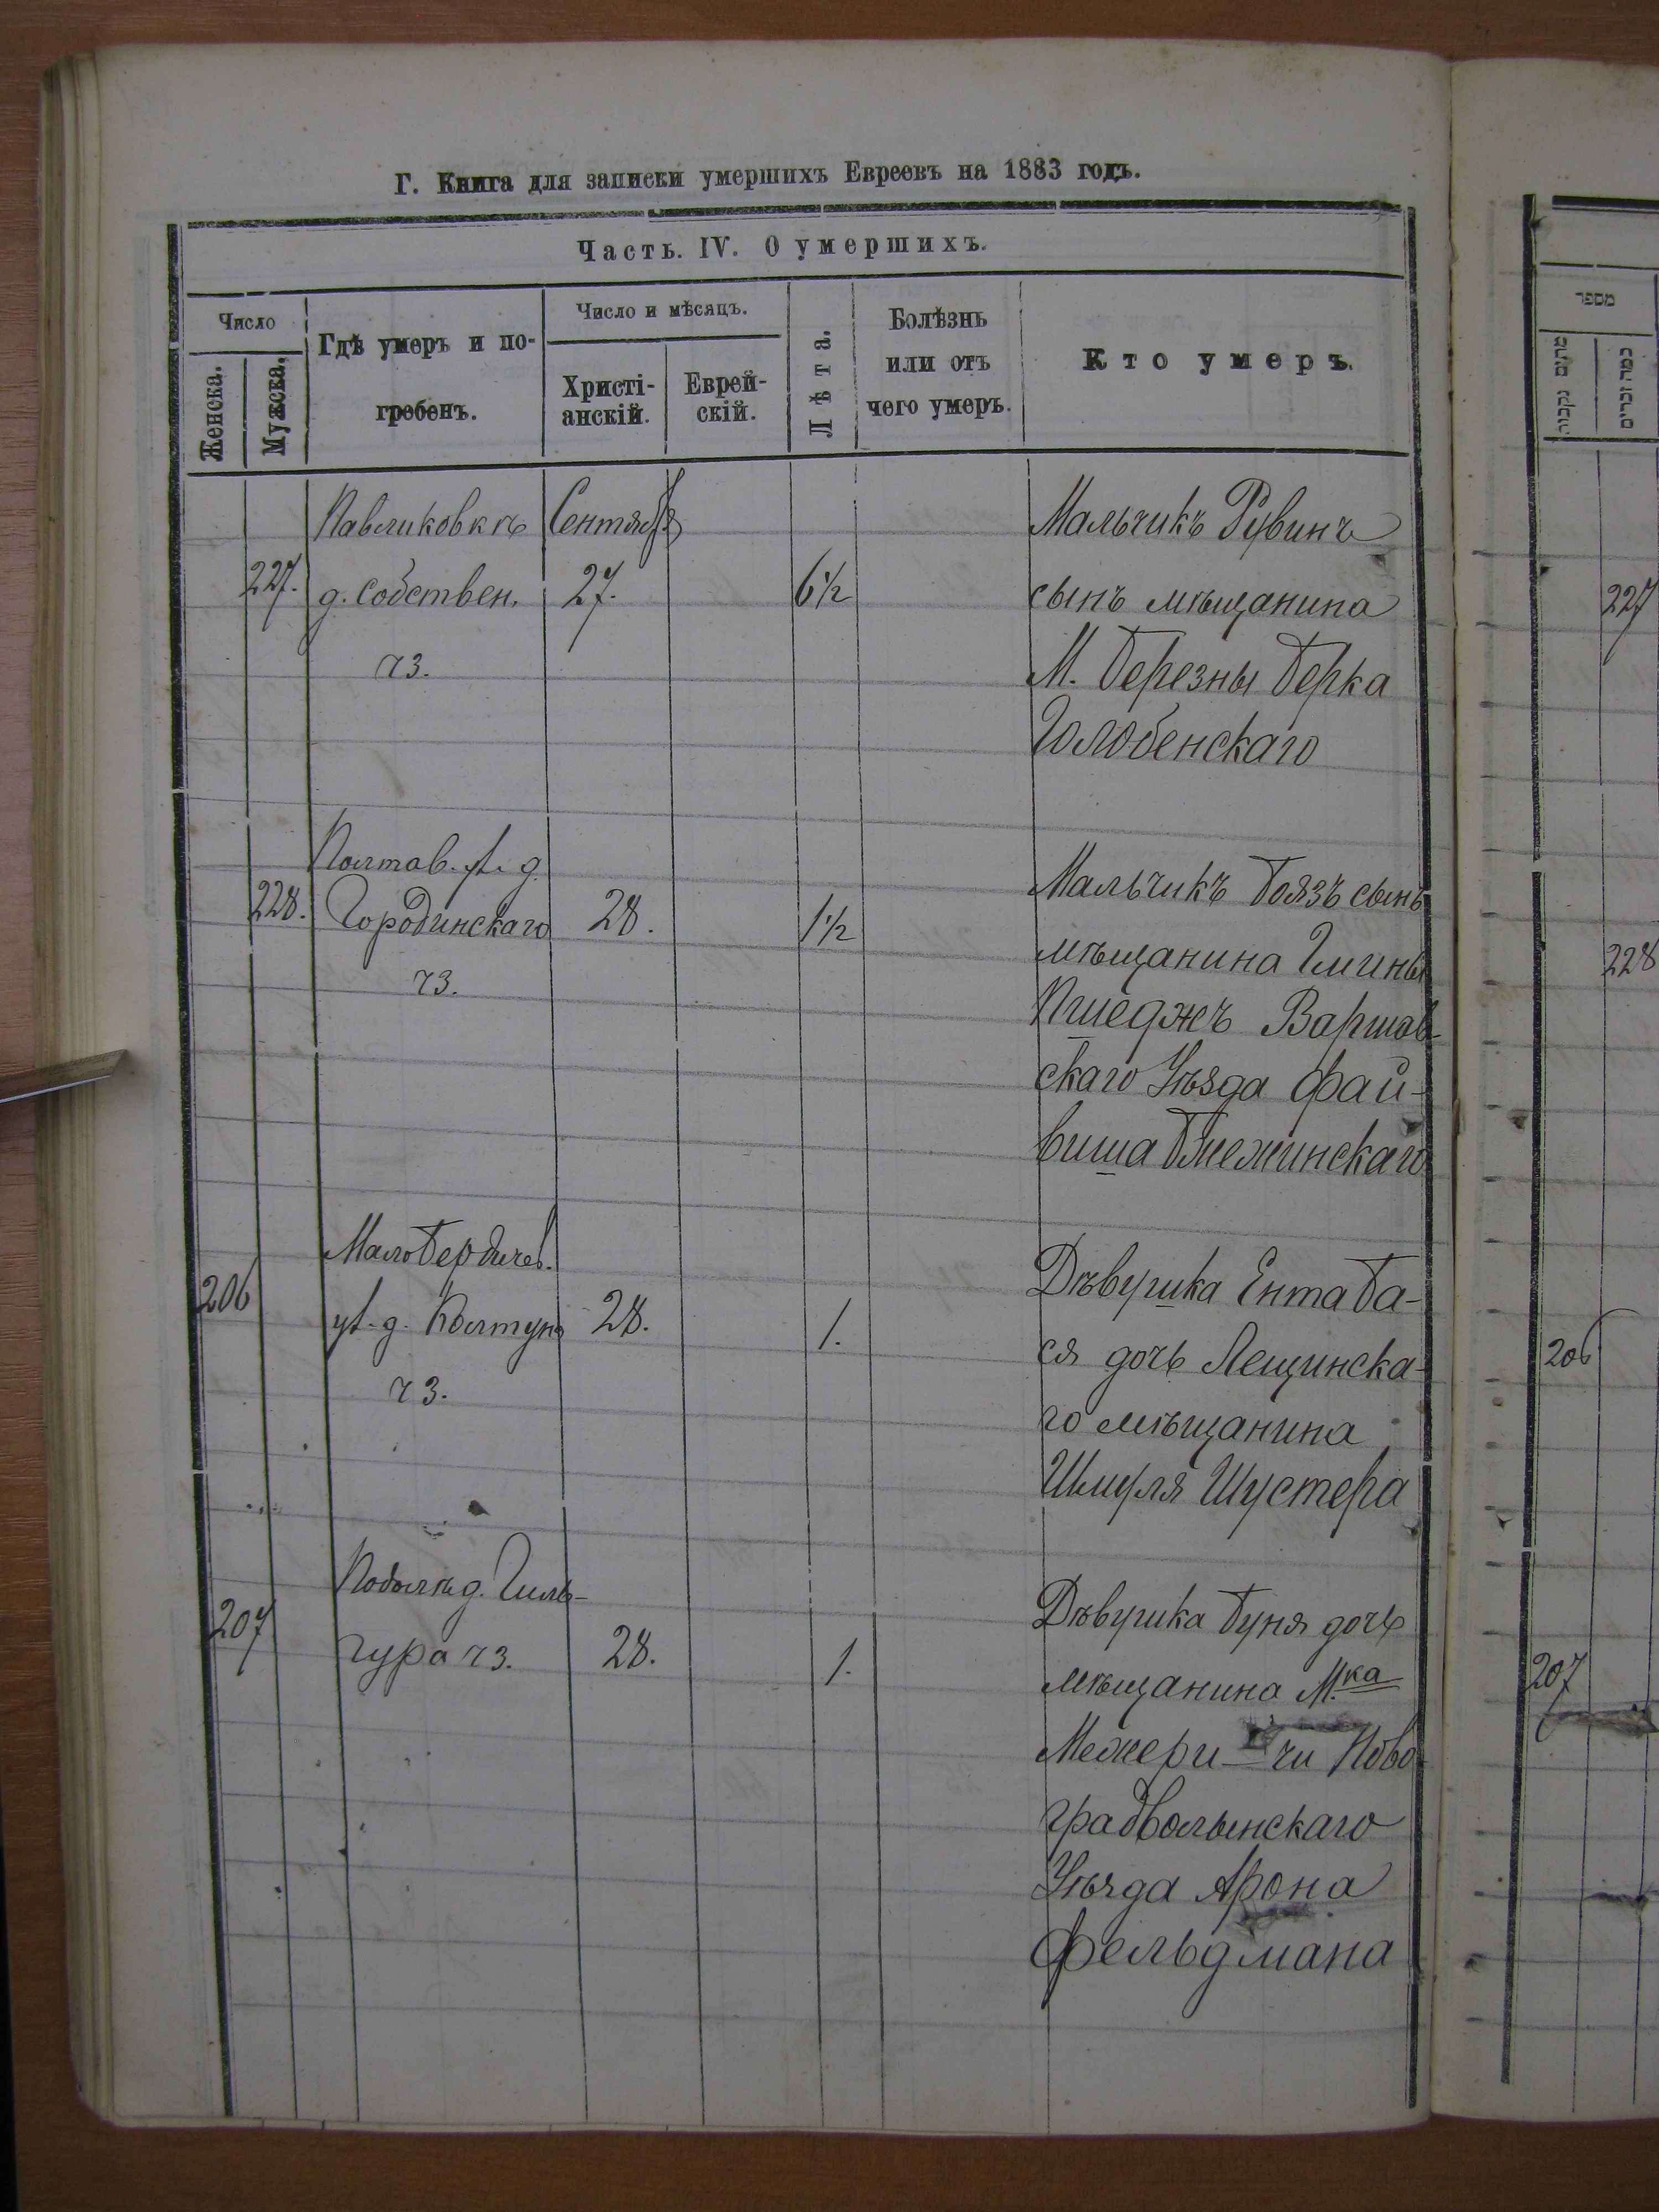 Г. Книга для записки умершихъ Евреевъ на 1883 годъ.
Часть. IV. О умершихъ.
Число
Женска.
Мужска.
Гдѣ умеръ и по-
гребенъ.
Число и мѣсяцъ.
Христі-
анскій.
Еврей-
скій.
Лѣта.
Болѣзнь
или отъ
чего умеръ.
Кто умеръ.
227.
Павликовкѣ
д. собствен.
чз.
Сентября
27.
6 1/2
Мальчикъ Рувинъ
сынъ мѣщанина
М. Березны Берка
Голобенскаго
228.
Полтав. ул. д.
Городинскаго
чз.
28.
1 1/2
Мальчикъ сынъ
мѣщанина Гмины
Варшав-
скаго Уѣзда Фай-
виша
206
МалоБердичев.
ул. д. Колтуна
чз.
28.
1.
Дѣвушка Ента Ба-
ся дочь Лещинска-
го мѣщанина
Шмуля Шустера
207
Подолѣ д. Гиль-
гура чз.
28.
1.
Дѣвушка Буня дочь
мѣщанина М.ка
Межери-чи Ново-
градволынскаго
Уѣзда Арона
Фельдмана
מספר
227
228
206
207